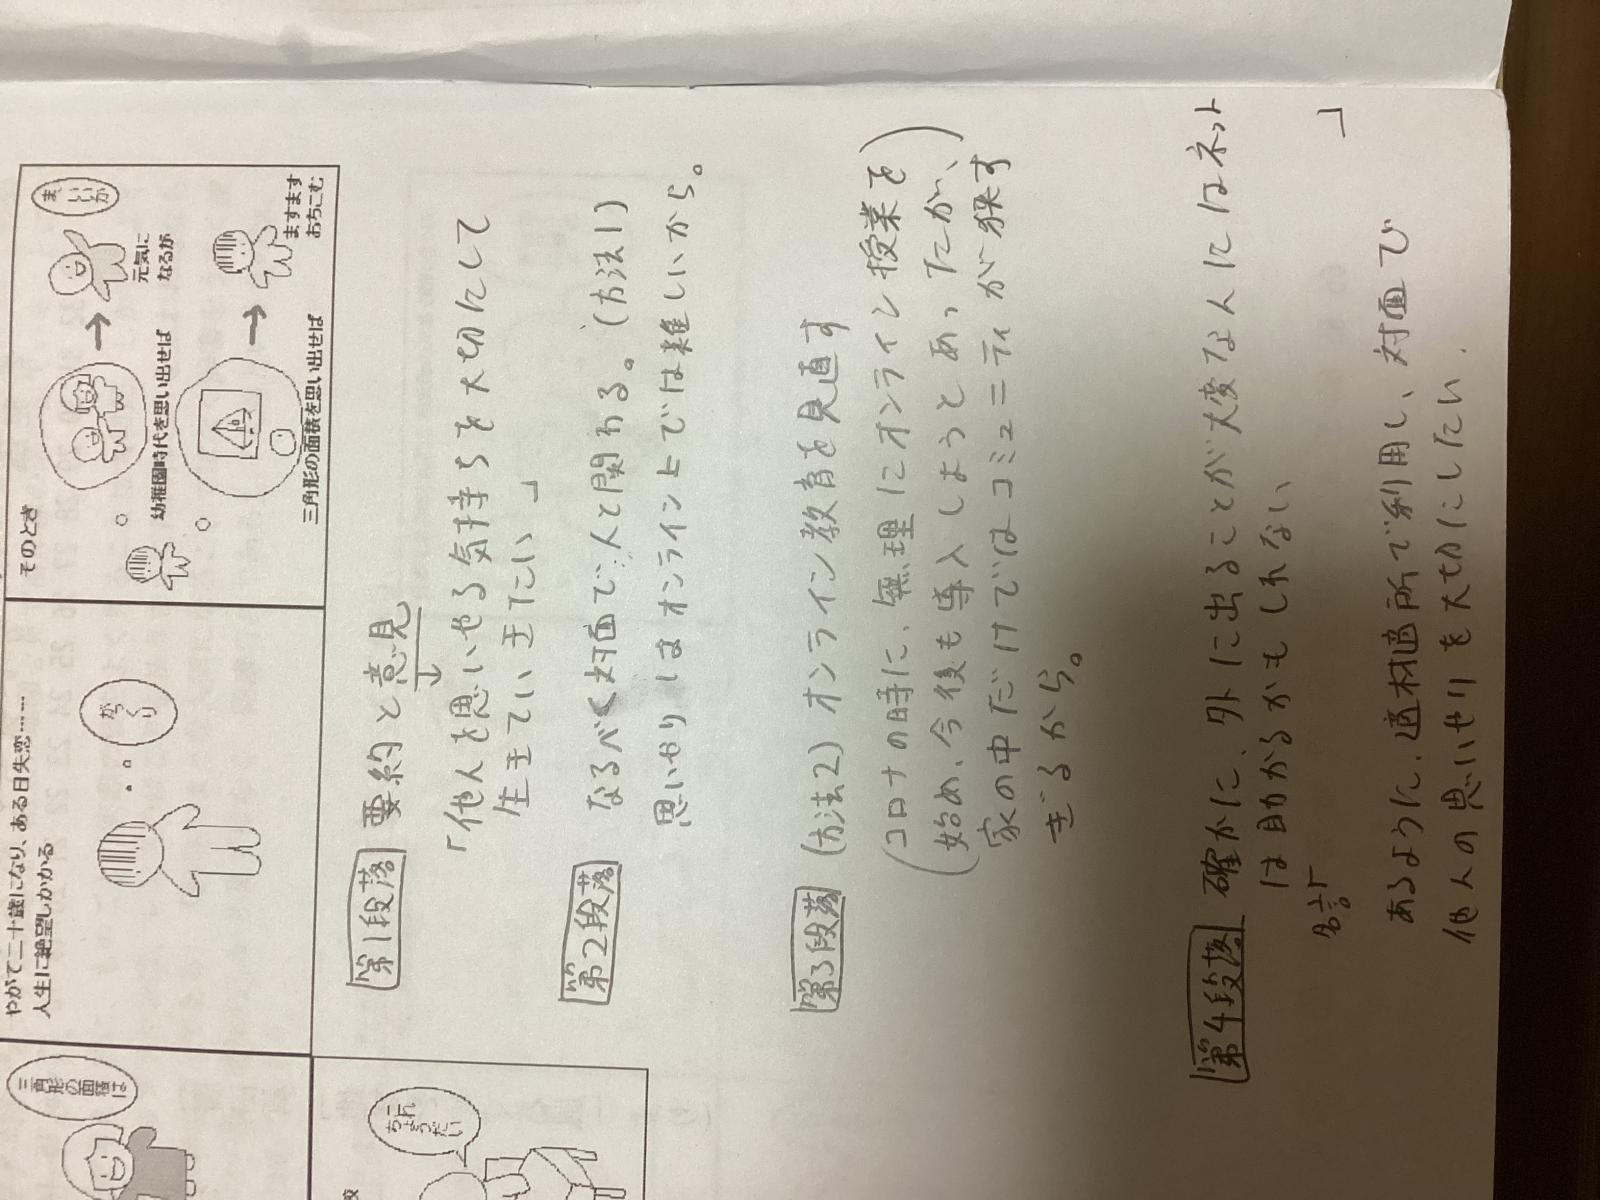 そのとき
幼稚園時代を思い出せば
元気に
なるが
ま
いいか
三角形の面積を思い出せば
ますます
おちこむ
やがて二十歳になり、ある日失恋……
人生に絶望しかかる
がっくり
三角形の面積は
これ
ちょうだい
第1段落 要約と意見
「他人を思いやる気持ちを大切にして
生きていきたい」
第2段落 なるべく対面で人と関わる。(方法1)
思いやりはオンライン上では難しいから。
第3段落 (方法2)オンライン教育を見直す
(コロナの時に、無理にオンライン授業を
始め、今後も導入しようとあったが、)
家の中だけではコミュニティが狭す
ぎるから。
第4段落 確かに、外に出ることが大変な人にはネット
は助かるかもしれない
名言「 」
あるように、適材適所で利用し、対面で
他人の思いやりを大切にしたい.